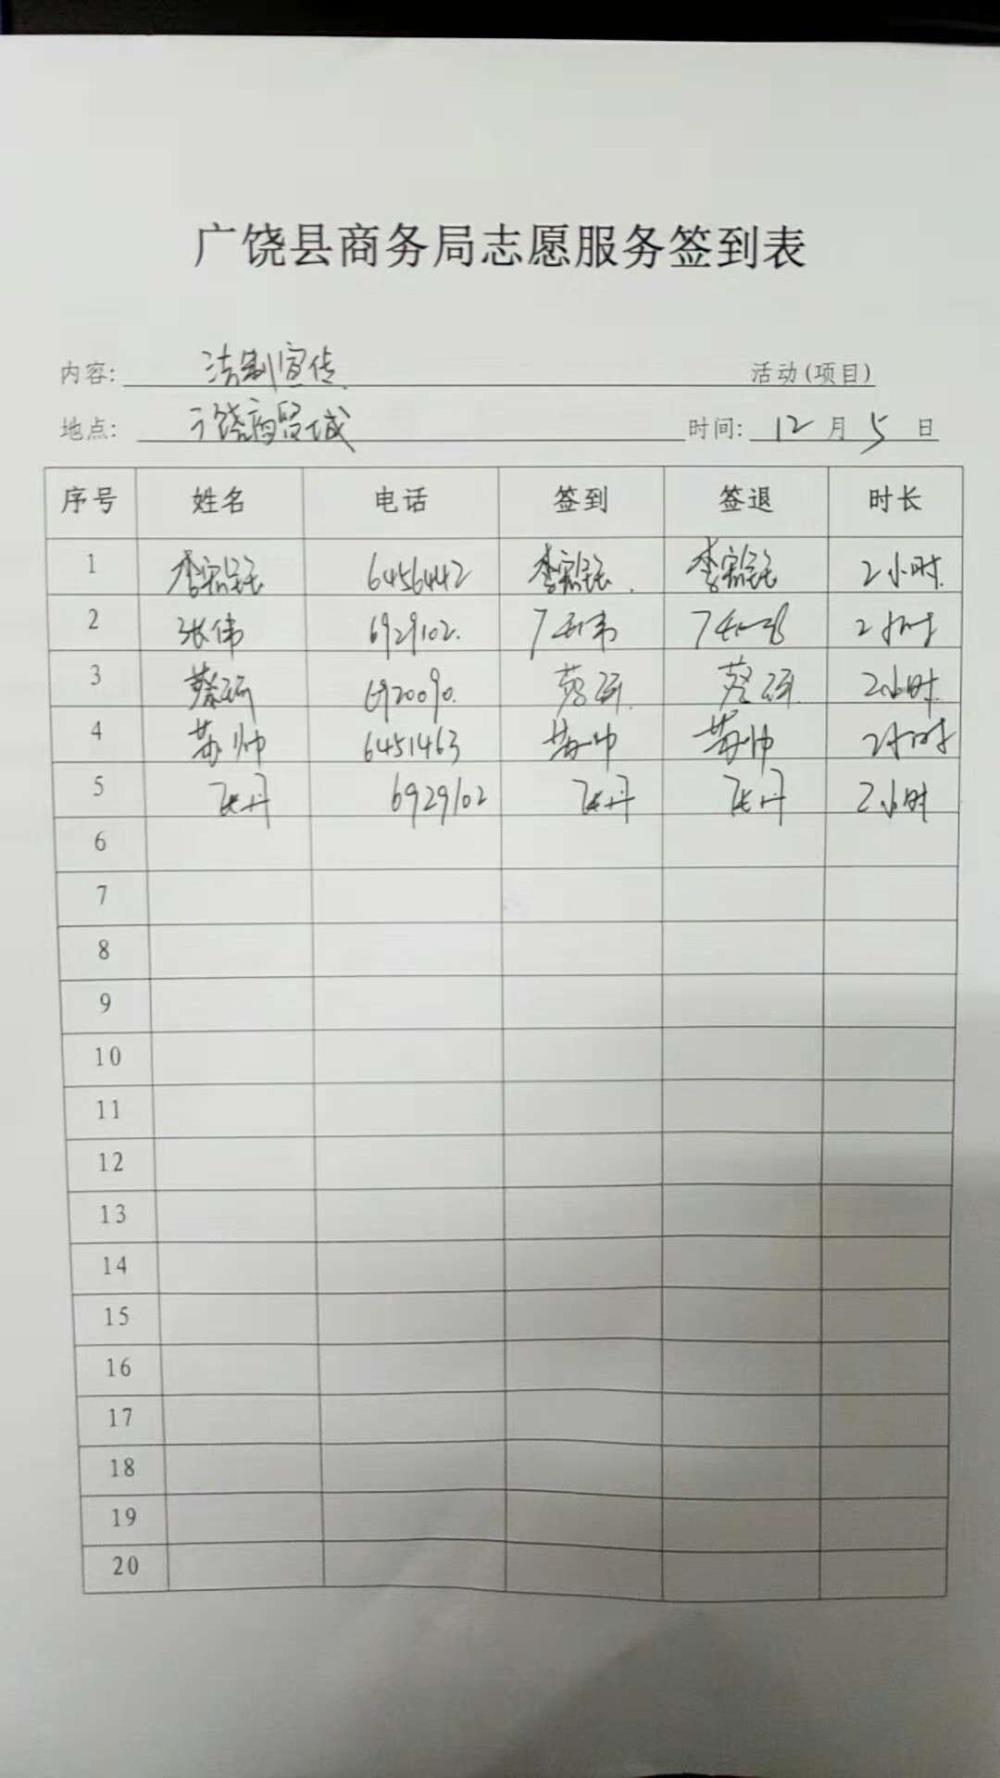 广饶县商务局志愿服务签到表
内容: 法制宣传 活动(项目)
地点: 广饶商贸城 时间: 12 月 5 日
序号 姓名 电话 签到 签退 时长
1 李 6456442 李 李 2小时
2 张伟 6929102. 2小时
3 蔡研 6920090. 蔡研 蔡研 2小时
4 苏帅 6451463 苏帅 苏帅 2小时
5 张丹 6929102 张丹 张丹 2小时
6
7
8
9
10
11
12
13
14
15
16
17
18
19
20